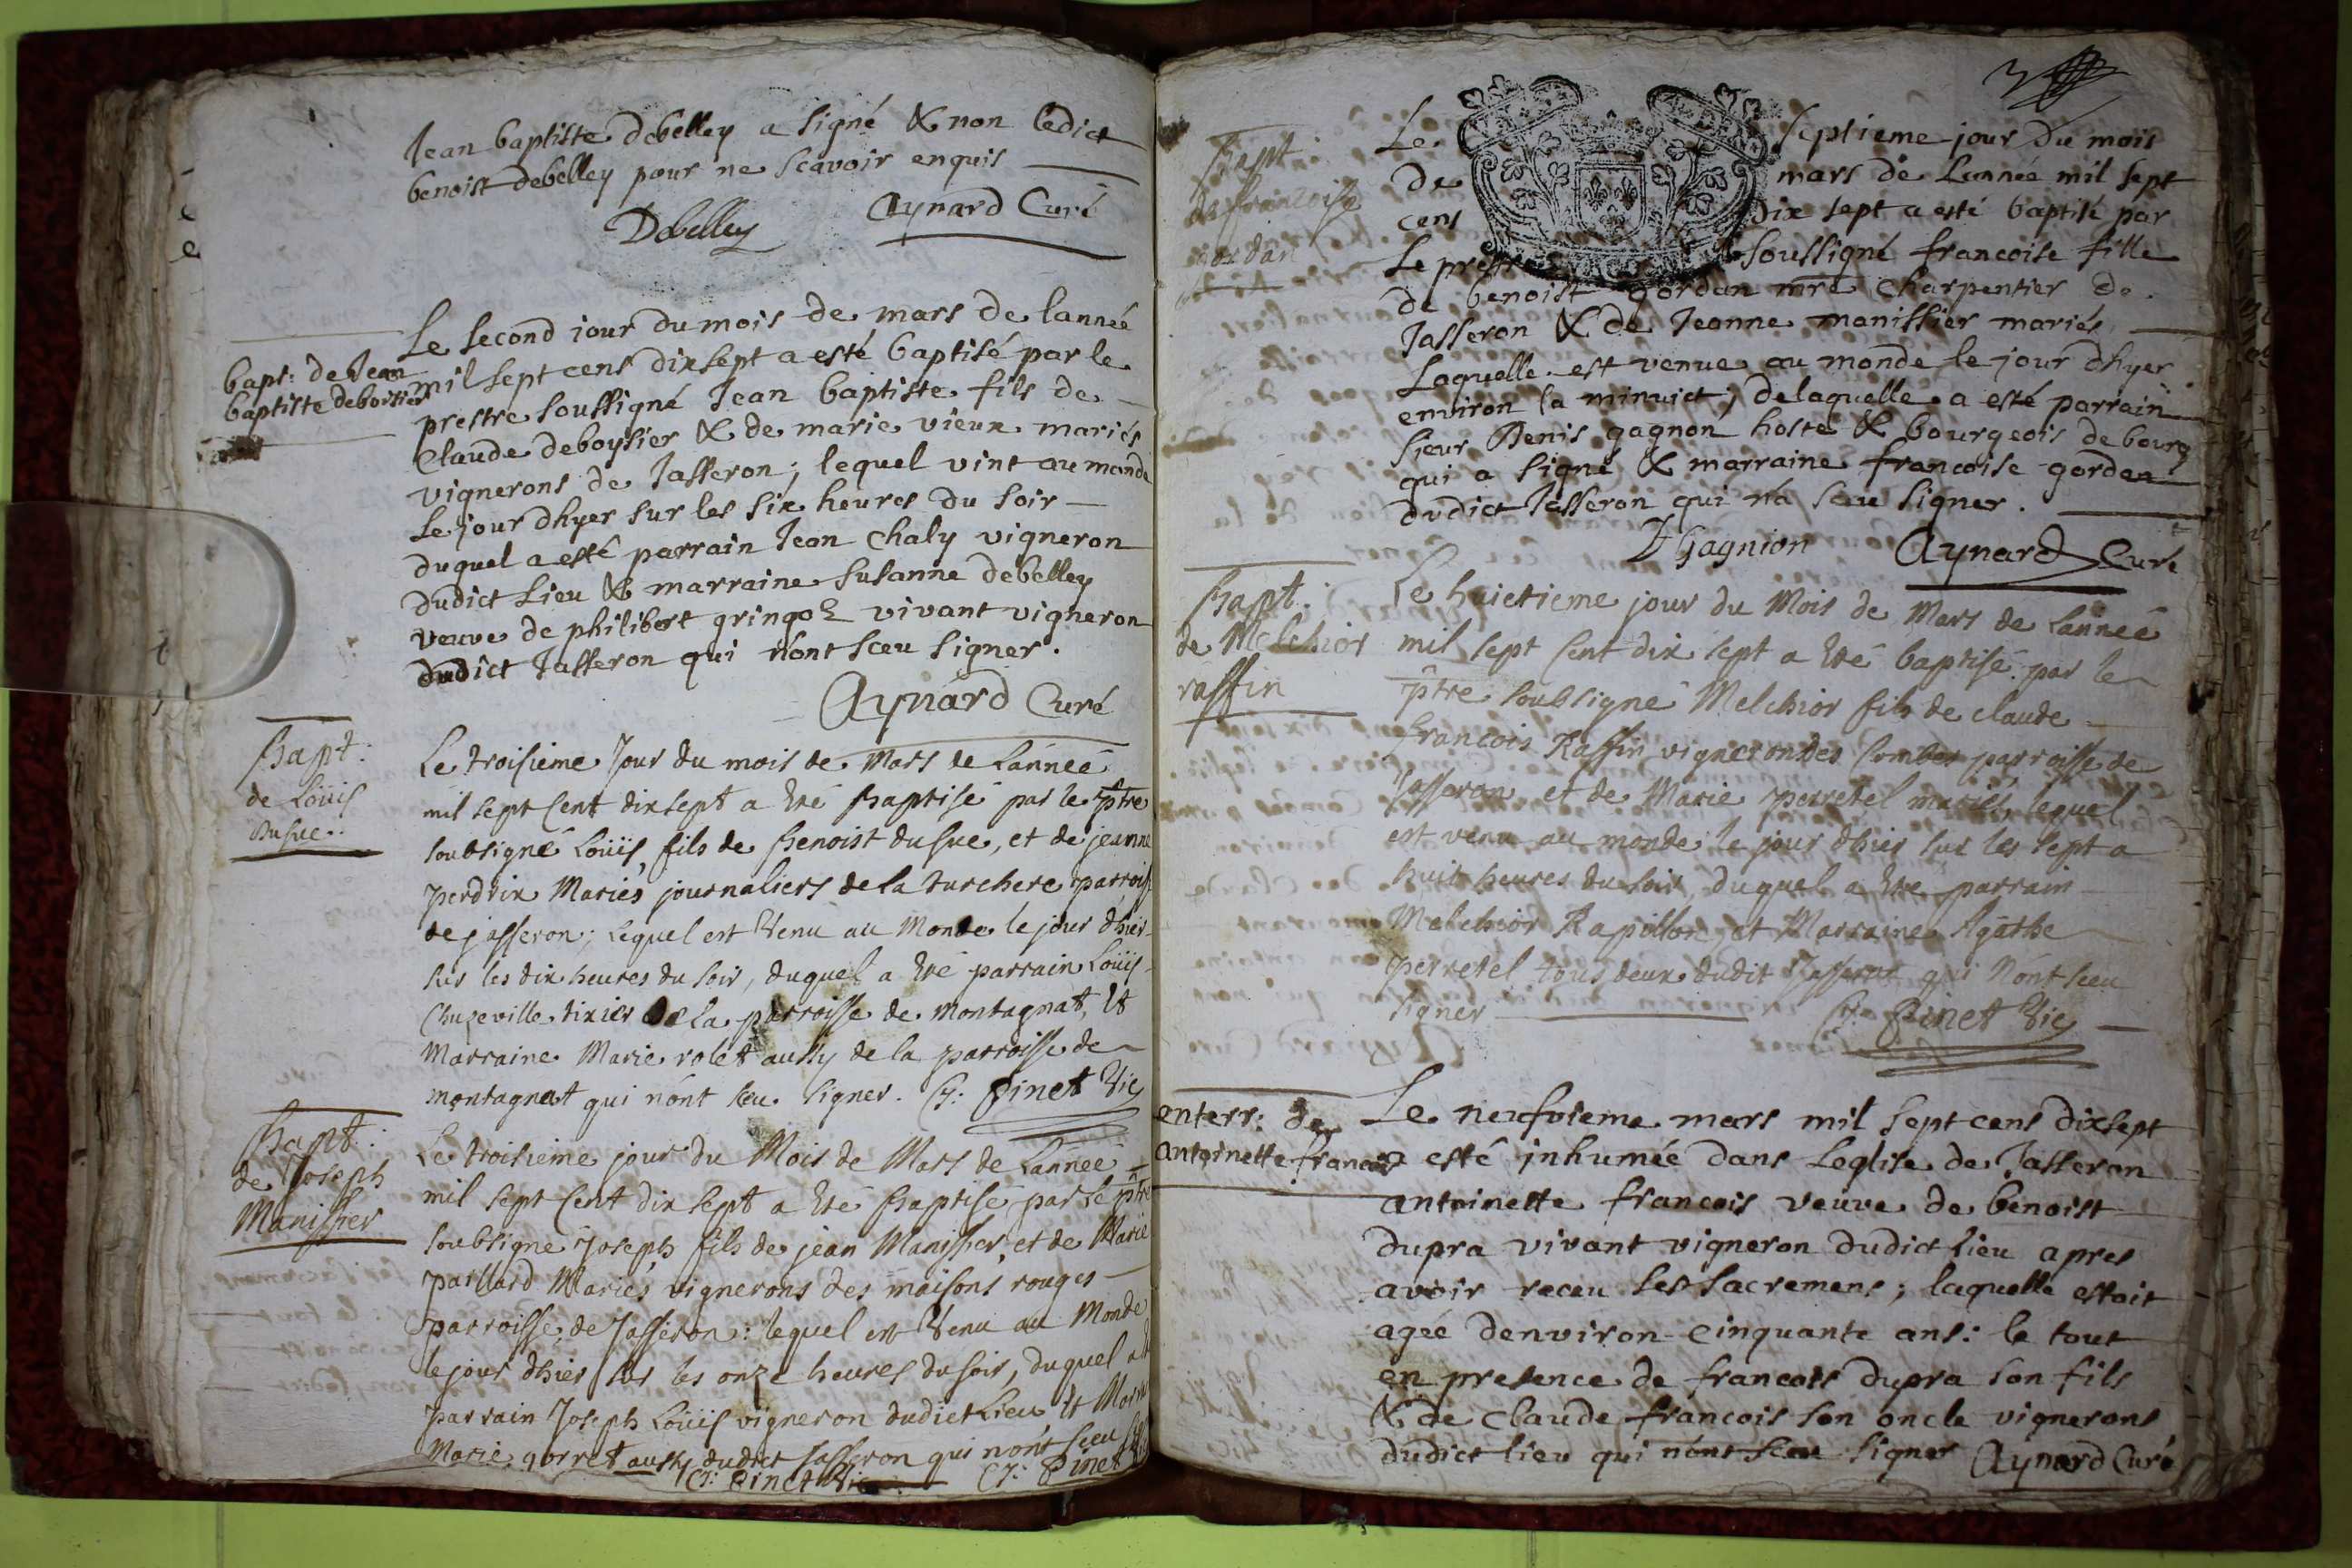 Jean baptiste Debelley a signé & non ledict
benoist debelley pour ne scavoir enquis
Debelley Aynard Curé
bapt: de Jean
baptiste deboisier
Le second jour du mois de mars de lannée
mil sept cens dixsept a esté baptisé par le
prestre soussigné Jean baptiste fils de
Claude deboysier & de marie vieux mariés
vignerons de Jasseron; lequel vint au monde
Le jour dhyer sur les six heures du soir
duquel a esté parrain Jean Chaly vigneron
dudict Lieu & marraine Susanne debelley
veuve de philibert gringoz vivant vigneron
dudict Jasseron qui n'ont sceu signer.
Aynard Curé
Bapt:
de Loüis
Dusue..
Le troisieme Jour du mois de Mars de Lannée
mil sept Cent dix sept a été Baptisé par le ptre
soubsigné Loüis, fils de Benoist dusue, et de jeanne
perdrix Mariés journaliers de la turchere parroiss
de jasseron; Lequel est Venu au Monde le jour dhier
sur les dix heures du soir, duquel a été parrain Loüis
Chuzeville tixier de la parroisse de Montagnat, et
Marraine Marie rolet aussy de la parroisse de
montagnat qui n'ont sceu signer. Cl: Pinet Vic
Bapt:
de Joseph
Manissier
Le troisieme jour du Mois de Mars de Lannée
mil sept Cent dix sept a été Baptisé par le ptre
soubsigné Joseph fils de jean Manissier, et de Marie
paillard Mariés vignerons des maisons rouges
parroisse de Jasseron: lequel est Venu au Monde
le jour dhier sur les onze heures du soir, duquel a été
parrain Joseph Loüis vigneron dudict Lieu et Marr
Marie gorret aussy dudict Jasseron qui n'ont sceu
Cl: Pinet Vic Cl: Pinet
Bapt
de francoise
gordan
Le septieme jour du mois
de mars de Lannée mil sept
cens dix sept a esté baptisé par
Le prest soussigné francoise fille
de benoist gordan mre Charpentier de
Jasseron & de Jeanne manissier mariés
Laquelle est venue au monde le jour dhyer
environ la minuict; delaquelle a esté parrain
sieur Denis gagnon hoste & bourgeois de bourg
qui a signé & marraine francoise gordan
dudict Jasseron qui n'a sceu signer.
Gagnion Aynard Curé
Bapt:
de Melchior
raffin
Le huictieme jour du Mois de Mars de Lannée
mil sept Cent dix sept a été baptisé par le
ptre soubsigné Melchior fils de claude
francois Raffin vigneron des Combes parroisse de
Jasseron et de Marie perretel mariés, lequel
est venu au monde le jour dhier sur les sept a
huit heures du soir, duquel a été parrain
Melchior Rapillon, et Marraine Agathe
perretel tous deux dudit Jasseron qui N'ont sceu
signer Cl: Pinet Vic
enterr: de
antoinette francois
Le neufvieme mars mil sept cens dixsept
a esté inhumée dans Leglise de Jasseron
antoinette francois veuve de benoist
dupra vivant vigneron dudict lieu apres
avoir receu les sacremens; laquelle estoit
agée denviron cinquante ans: le tout
en presence de francois dupra son fils
& de Claude francois son oncle vignerons
dudict lieu qui n'ont sceu signer Aynard Curé